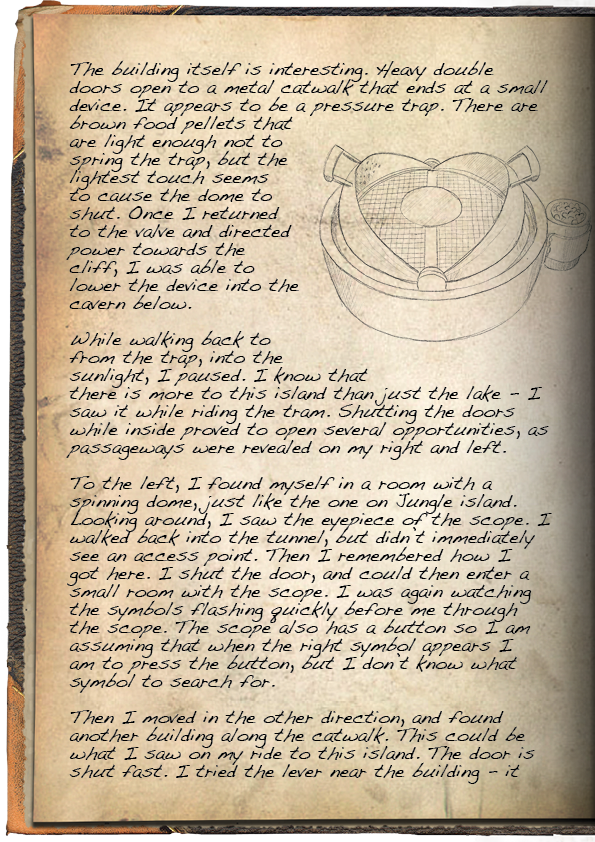 The building itself is interesting. Heavy double
doors open to a metal catwalk that ends at a small
device. It appears to be a pressure trap. There are
brown food pellets that
are light enough not to
spring the trap, but the
lightest touch seems
to cause the dome to
shut. Once I returned
to the valve and directed
power towards the
cliff, I was able to
lower the device into the
cavern below.
While walking back to
from the trap, into the
sunlight, I paused. I know that
there is more to this island than just the lake - I
saw it while riding the tram. Shutting the doors
while inside proved to open several opportunities, as
passageways were revealed on my right and left.
To the left, I found myself in a room with a
spinning dome, just like the one on Jungle island.
Looking around, I saw the eyepiece of the scope. I
walked back into the tunnel, but didn't immediately
see an access point. Then I remembered how I
got here. I shut the door, and could then enter a
small room with the scope. I was again watching
the symbols flashing quickly before me through
the scope. The scope also has a button so I am
assuming that when the right symbol appears I
am to press the button, but I don't know what
symbol to search for.
Then I moved in the other direction, and found
another building along the catwalk. This could be
what I saw on my ride to this island. The door is
shut fast. I tried the lever near the building - it